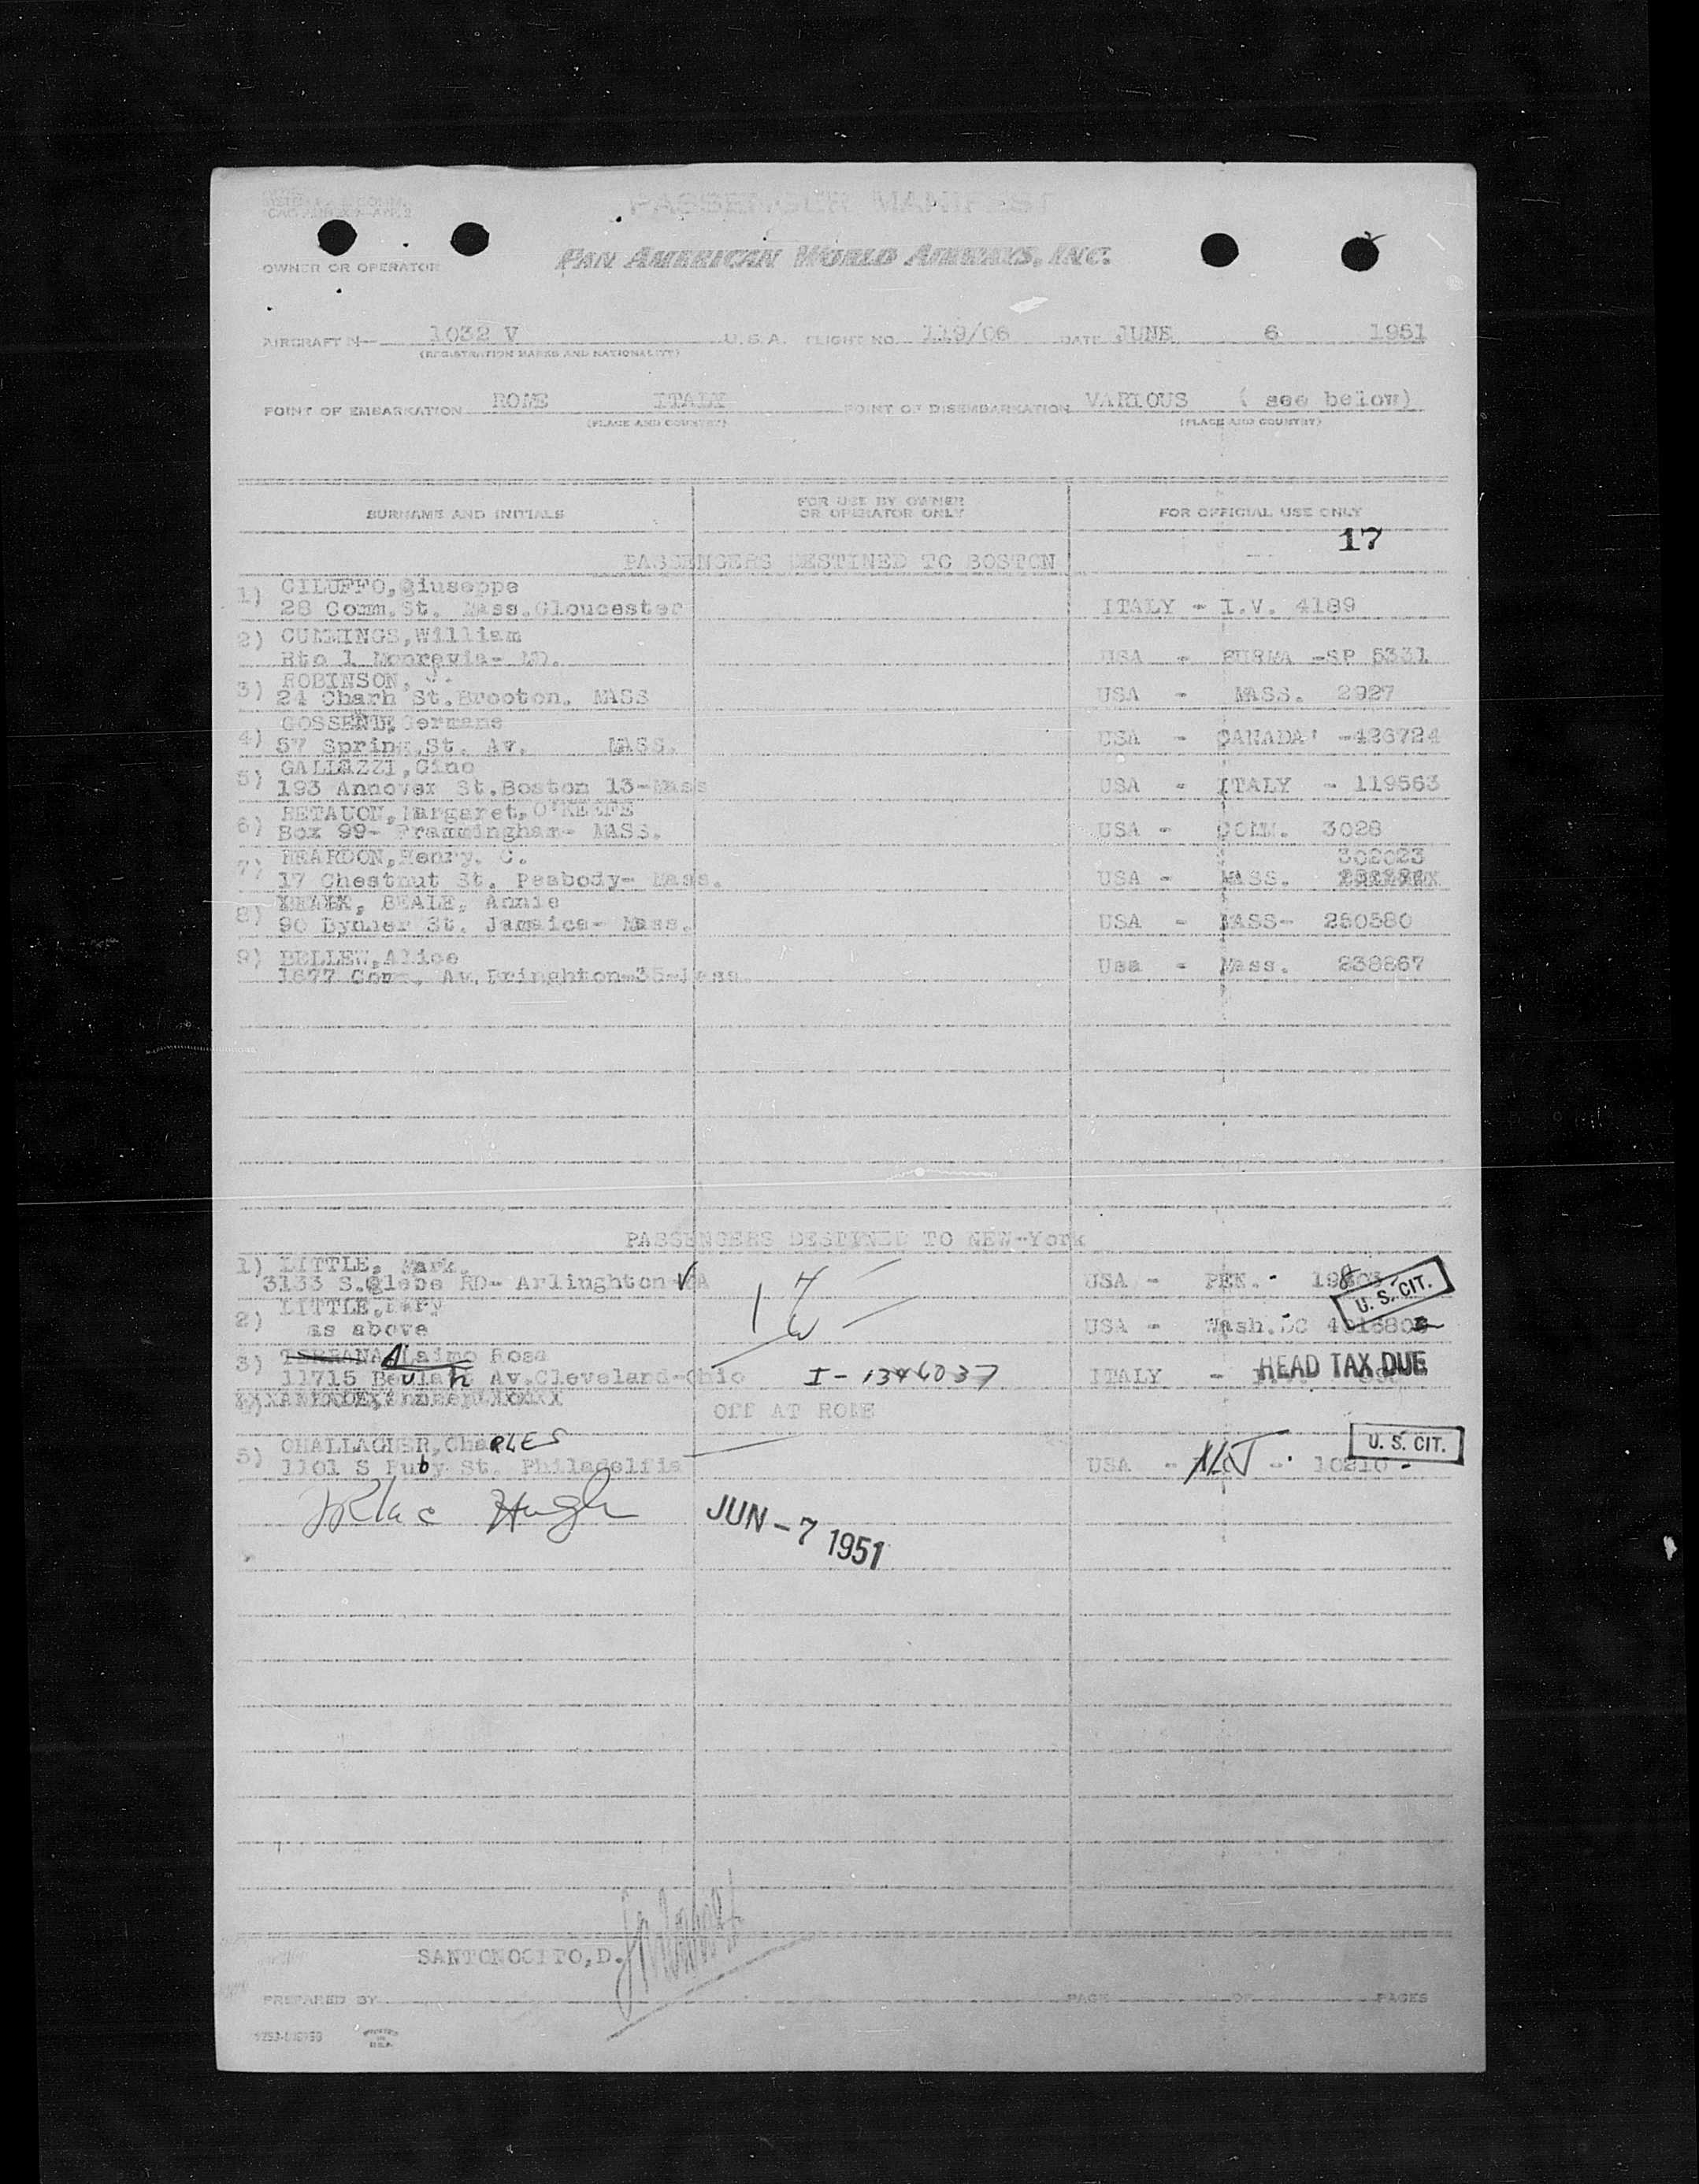 PASSENGER MANIFEST
PAN AMERICAN WORLD AIRWAYS, INC.
OWNER OR OPERATOR
AIRCRAFT N- 1032 V U.S.A. FLIGHT NO. 119/06 DATE JUNE 6 1951
(REGISTRATION MARKS AND NATIONALITY)
POINT OF EMBARKATION ROME ITALY POINT OF DISEMBARKATION VARIOUS ( see below)
(PLACE AND COUNTRY) (PLACE AND COUNTRY)
SURNAME AND INITIALS FOR USE BY OWNER OR OPERATOR ONLY FOR OFFICIAL USE ONLY
17
PASSENGERS DESTINED TO BOSTON
1) CILUFFO,Giuseppe
28 Comm.St. Mass.Gloucester ITALY - I.V. 4189
2) CUMMINGS,William
Rto 1 Monrovia- MD. USA - BURMA -SP 5331
3) ROBINSON, J.
24 Charh St.Brooton. MASS USA - MASS. 2927
4) Germane
57 Spring.St. Av. MASS. USA - CANADA -426724
5) GALLAZZI,Gino
193 Annovex St.Boston 13-Mass USA - ITALY - 119563
6) Margaret,O'KEEFE
Box 99- Framminghar- MASS. USA - COMM. 3028
7) REARDON,Henry. C. 302023
17 Chestnut St. Peabody- Mass. USA - MASS.
8) BEALE, Annie
90 Bynner St. Jamaica- Mass. USA - MASS- 260580
9) BELLEW,Alice
1677 Com. Av.Bringhton-35-Mass Usa - Mass. 238867
PASSENGERS DESTINED TO NEW-York
1) LITTLE, Mark.
3133 S.Glebe RD- Arlinghton VA USA - PEN.-
U. S. CIT.
2) LITTLE,Mary
as above USA - Wash.DC
3) Laimo Rosa
11715 Beulah Av.Cleveland-Ohio I-1346037 ITALY - HEAD TAX DUE
OFF AT ROME
5) CHALLAGHER,ChaRLES
1101 S Ruby St. Philadelfia USA - 10210 -
U. S. CIT.
JUN - 7 1951
SANTONOCITO,D.
PREPARED BY PAGE OF PAGES
PRINTED IN U.S.A.